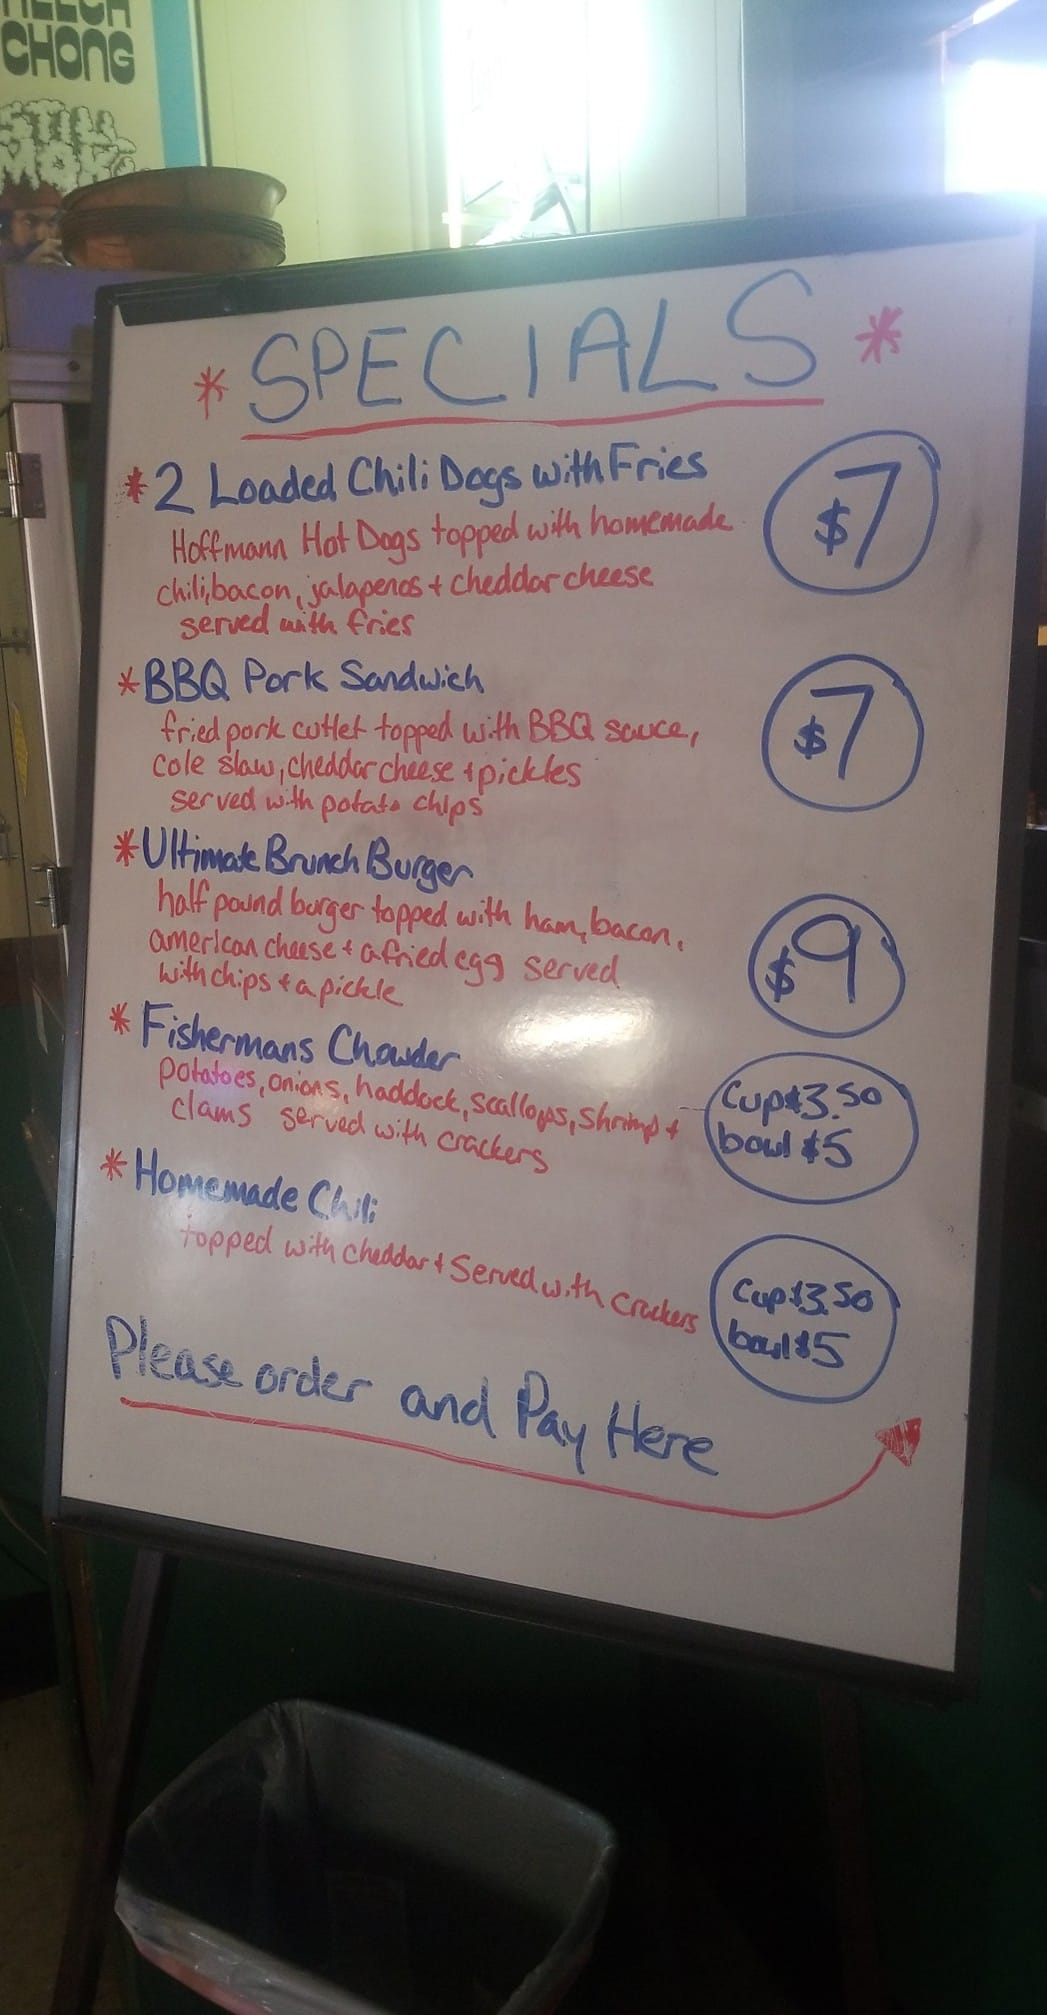 CHONG
* SPECIALS *
* 2 Loaded Chili Dogs with Fries $7
Hoffmann Hot Dogs topped with homemade
chili, bacon, jalapenos + cheddar cheese
served with fries
* BBQ Pork Sandwich $7
fried pork cutlet topped with BBQ sauce,
cole slaw, cheddar cheese + pickles
served with potato chips
* Ultimate Brunch Burger $9
half pound burger topped with ham, bacon,
american cheese + a fried egg served
with chips + a pickle
* Fishermans Chowder
potatoes, onions, haddock, scallops, shrimp +
clams served with crackers
Cup $3.50
bowl $5
* Homemade Chili
topped with cheddar + Served with crackers
Cup $3.50
bowl $5
Please order and Pay Here